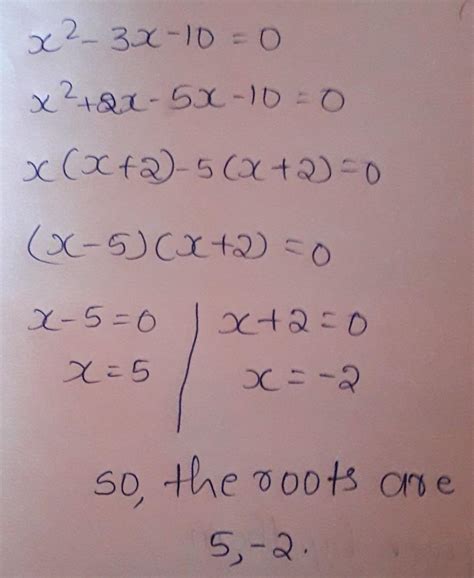 x² - 3x - 10 = 0
x² + 2x - 5x - 10 = 0
x(x+2) - 5(x+2) = 0
(x-5)(x+2) = 0
x - 5 = 0 | x + 2 = 0
x = 5 | x = -2
so, the roots are
5, -2.